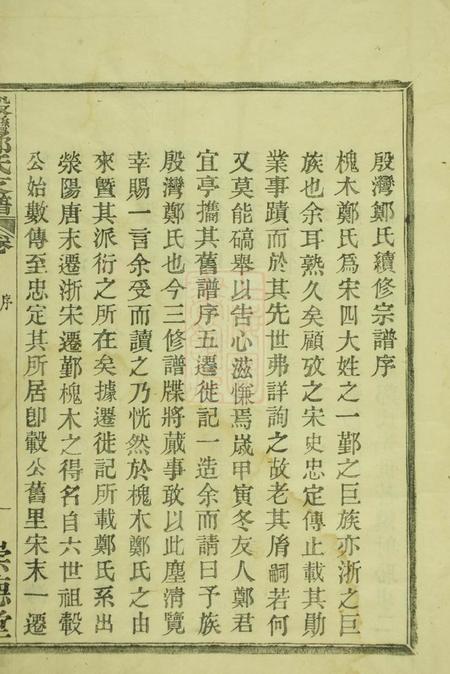 殷灣鄭氏續修宗譜序
槐木鄭氏爲宋四大姓之一鄞之巨族亦浙之巨
族也余耳熟久矣顧攷之宋史忠定傳止載其勛
業事蹟而於其先世弗詳詢之故老其胤嗣若何
又莫能碻舉以告心滋慊焉歲甲寅冬友人鄭君
宜亭攜其舊譜序五遷徙記一造余而請曰予族
殷灣鄭氏也今三修譜牒將蕆事敢以此塵清覽
幸賜一言余受而讀之乃恍然於槐木鄭氏之由
來曁其派衍之所在矣據遷徙記所載鄭氏系出
滎陽唐末遷浙宋遷鄞槐木之得名自六世祖縠
公始數傳至忠定其所居卽縠公舊里宋末一遷
殷灣鄭氏宗譜
序
一
崇德堂